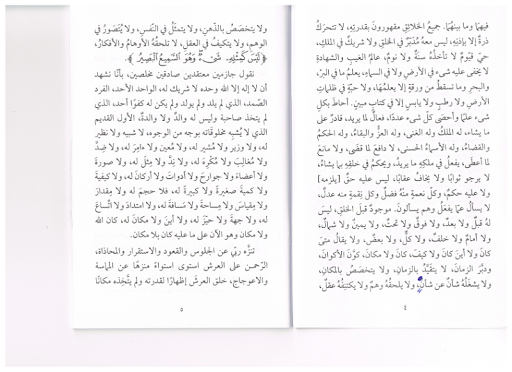 فيهمَا وما بينَهُمَا. جميعُ الخلائقِ مقهورونَ بقدرتِهِ، لا تتحركُ
ذرةٌ إلا بإذنِهِ، ليس معهُ مُدَبّرٌ في الخلقِ ولا شريكٌ في الملكِ،
حيٌّ قيّومٌ لا تأخذُهُ سنةٌ ولا نومٌ، عالمُ الغيبِ والشهادةِ
لا يخفى عليه شىءٌ في الأرضِ ولا في السماءِ، يعلمُ ما في البرِّ
والبحرِ وما تسقطُ من ورقةٍ إلا يعلمُهَا، ولا حبةٍ في ظلماتِ
الأرضِ ولا رطبٍ ولا يابسٍ إلا في كتابٍ مبينٍ. أحاطَ بكلِ
شىءٍ علمًا وأحصى كلَّ شىءٍ عددًا، فعالٌ لما يريدُ، قادرٌ على
ما يشاءُ، له الملكُ وله الغنى، وله العزُّ والبقاءُ، وله الحكمُ
والقضاءُ، وله الأسماءُ الحسنى، لا دافعَ لما قضى، ولا مانعَ
لما أعطى، يفعلُ في ملكِهِ ما يريدُ، ويحكمُ في خلقِهِ بما يشاءُ.
لا يرجو ثوابًا ولا يخافُ عقابًا، ليس عليه حقٌّ [يلزمه]
ولا عليه حكمٌ، وكلُّ نعمةٍ منهُ فضلٌ وكلُّ نقمةٍ منه عدلٌ،
لا يُسألُ عمّا يفعلُ وهم يسألونَ. موجودٌ قبلَ الخلقِ، ليسَ
لهُ قبلٌ ولا بعدٌ، ولا فوقٌ ولا تحتٌ، ولا يمينٌ ولا شمالٌ،
ولا أمامٌ ولا خلفٌ، ولا كلٌّ، ولا بعضٌ، ولا يقالُ متى
كانَ ولا أينَ كانَ ولا كيفَ، كانَ ولا مكان، كوَّنَ الأكوانَ،
ودبَّرَ الزمانَ، لا يتقيَّدُ بالزمانِ، ولا يتخصَّصُ بالمكانِ،
ولا يشغلُهُ شأنٌ عن شأنٍ، ولا يلحقُهُ وهمٌ ولا يكتنفُهُ عقلٌ،
٤
ولا يتخصَّصُ بالذهنِ، ولا يتمثلُ في النفسِ، ولا يُتصَوَّرُ في
الوهمِ، ولا يتكيفُ في العقلِ، لا تلحقُهُ الأوهامُ والأفكارُ،
﴿لَيْسَ كَمِثْلِهِ شَىْءٌ وَهُوَ السَّمِيعُ الْبَصِيرُ﴾.
نقول جازمين معتقدين صادقين مخلصين، بأنّا نشهد
أن لا إله إلا الله وحده لا شريك له، الواحد الأحد، الفرد
الصمد، الذي لم يلد ولم يولد ولم يكن له كفوًا أحد، الذي
لم يتخذ صاحبة وليس له والدٌ ولا والدةٌ، الأول القديم
الذي لا يُشبِه مخلوقاته بوجه من الوجوه، لا شبيه ولا نظير
له، ولا وزير ولا مُشير له، ولا مُعين ولا ءامِر له، ولا ضِدَّ
ولا مُغالِبَ ولا مُكْرِهَ له، ولا نِدَّ ولا مِثْل له، ولا صورةَ
ولا أعضاءَ ولا جوارحَ ولا أدواتَ ولا أركانَ له، ولا كيفيةَ
ولا كميةَ صغيرةً ولا كبيرةً له، فلا حجمَ له، ولا مِقدارَ
ولا مِقياسَ ولا مِساحةَ ولا مَسافةَ له، ولا امتدادَ ولا اتّساعَ
له، ولا جهةَ ولا حيّزَ له، ولا أينَ ولا مكانَ له، كان الله
ولا مكان وهو الآن على ما عليه كان بلا مكان.
تنزّه ربّي عن الجلوس والقعود والاستقرار والمحاذاة،
الرّحمن على العرش استوى استواءً منزّهًا عن المماسة
والاعوجاج، خلق العرشَ إظهارًا لقدرته ولم يتَّخذه مكانًا
٥